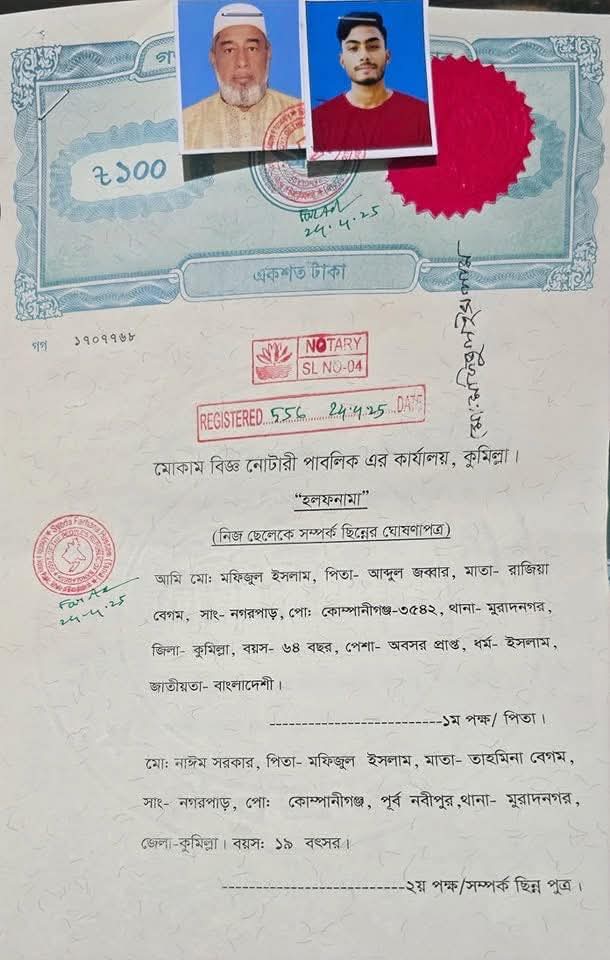 গণ
৳১০০
Farhd
24.4.25
একশত টাকা
গপ ১৭০৭৭৬৮
মো: মফিজুল ইসলাম
NOTARY
SL NO-04
REGISTERED 556 24.4.25 DATE
মোকাম বিজ্ঞ নোটারী পাবলিক এর কার্যালয়, কুমিল্লা।
“হলফনামা”
(নিজ ছেলেকে সম্পর্ক ছিন্নের ঘোষণাপত্র)
আমি মো: মফিজুল ইসলাম, পিতা- আব্দুল জব্বার, মাতা- রাজিয়া
বেগম, সাং- নগরপাড়, পো: কোম্পানীগঞ্জ-৩৫৪২, থানা- মুরাদনগর,
জিলা- কুমিল্লা, বয়স- ৬৪ বছর, পেশা- অবসর প্রাপ্ত, ধর্ম- ইসলাম,
24-4.25
জাতীয়তা- বাংলাদেশী।
------------------------১ম পক্ষ/ পিতা।
মো: নাঈম সরকার, পিতা- মফিজুল ইসলাম, মাতা- তাহমিনা বেগম,
সাং- নগরপাড়, পো: কোম্পানীগঞ্জ, পূর্ব নবীপুর,থানা- মুরাদনগর,
জেলা-কুমিল্লা। বয়স: ১৯ বৎসর।
--------------------------২য় পক্ষ/সম্পর্ক ছিন্ন পুত্র।